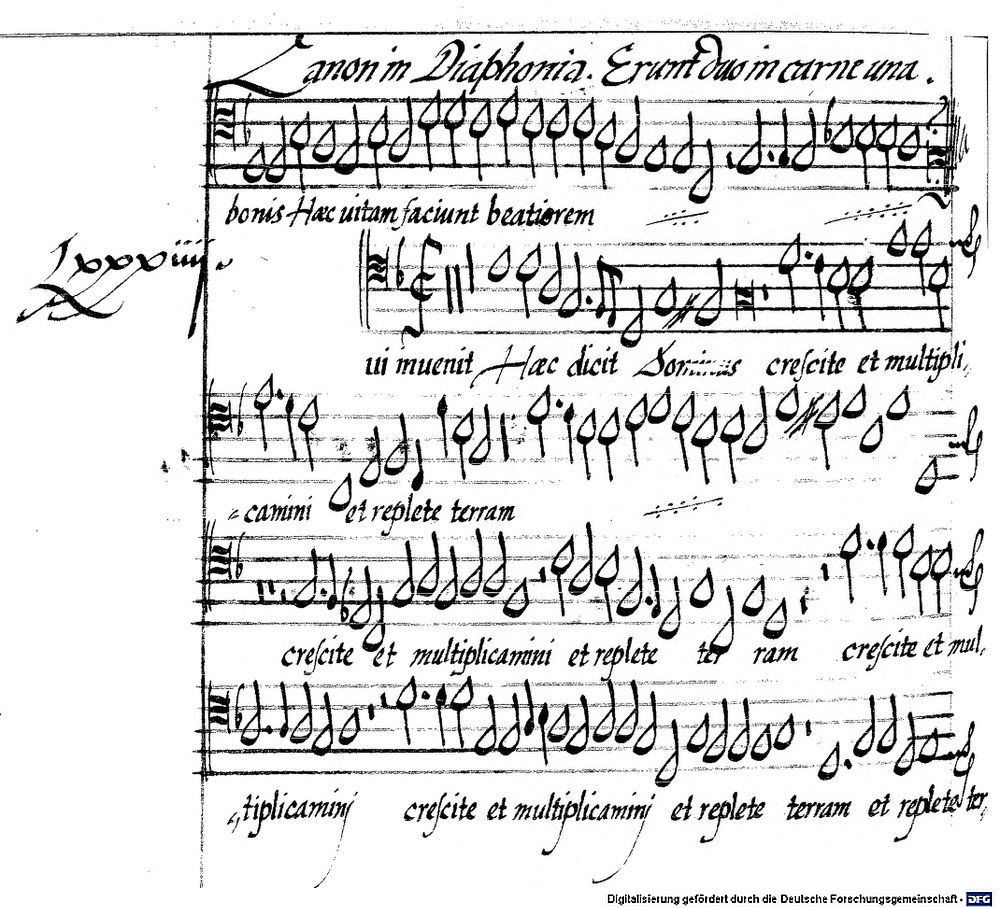 Canon in Diaphonia. Erunt duo in carne una.
bonis Hæc uitam faciunt beatiorem
Lxxxiiii.
ui inuenit Hæc dicit Dominus crescite et multipli,,
-camini et replete terram
crescite et multiplicamini et replete ter ram crescite et mul,
,,tiplicaminj crescite et multiplicaminj et replete terram et replete ter,
Digitalisierung gefördert durch die Deutsche Forschungsgemeinschaft - DFG